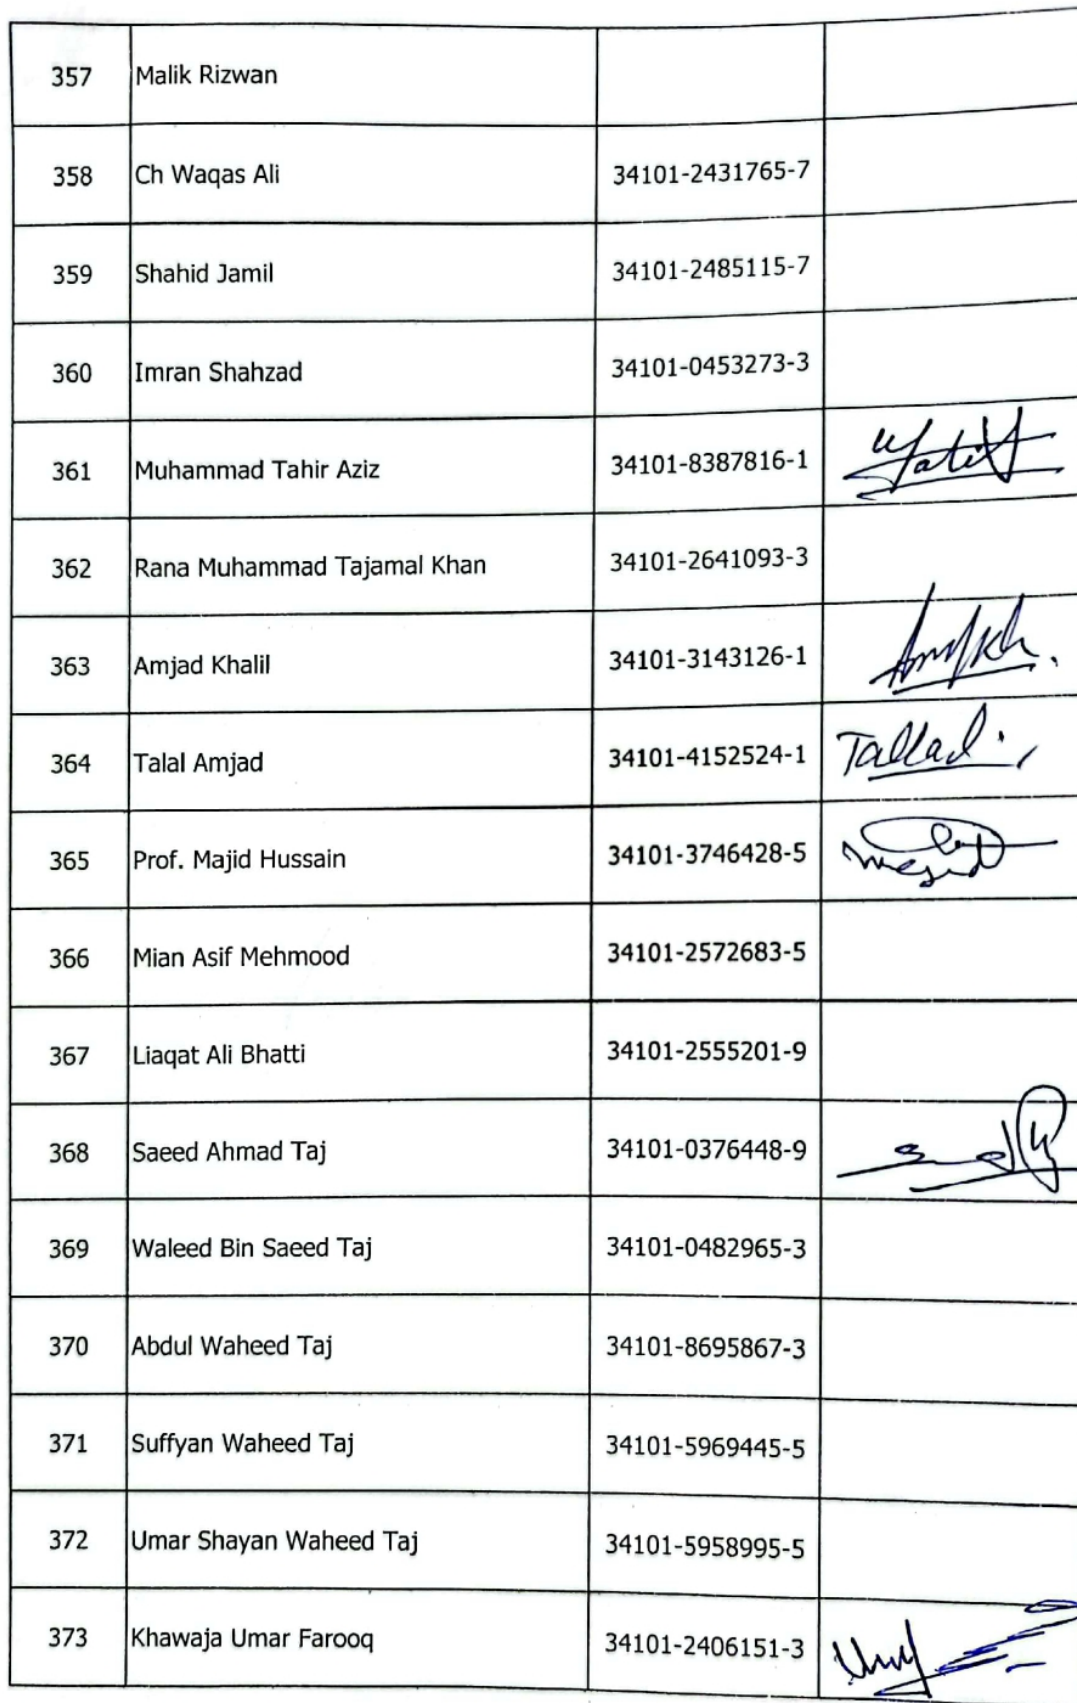 357 Malik Rizwan
358 Ch Waqas Ali 34101-2431765-7
359 Shahid Jamil 34101-2485115-7
360 Imran Shahzad 34101-0453273-3
361 Muhammad Tahir Aziz 34101-8387816-1
362 Rana Muhammad Tajamal Khan 34101-2641093-3
363 Amjad Khalil 34101-3143126-1
364 Talal Amjad 34101-4152524-1
365 Prof. Majid Hussain 34101-3746428-5
366 Mian Asif Mehmood 34101-2572683-5
367 Liaqat Ali Bhatti 34101-2555201-9
368 Saeed Ahmad Taj 34101-0376448-9
369 Waleed Bin Saeed Taj 34101-0482965-3
370 Abdul Waheed Taj 34101-8695867-3
371 Suffyan Waheed Taj 34101-5969445-5
372 Umar Shayan Waheed Taj 34101-5958995-5
373 Khawaja Umar Farooq 34101-2406151-3